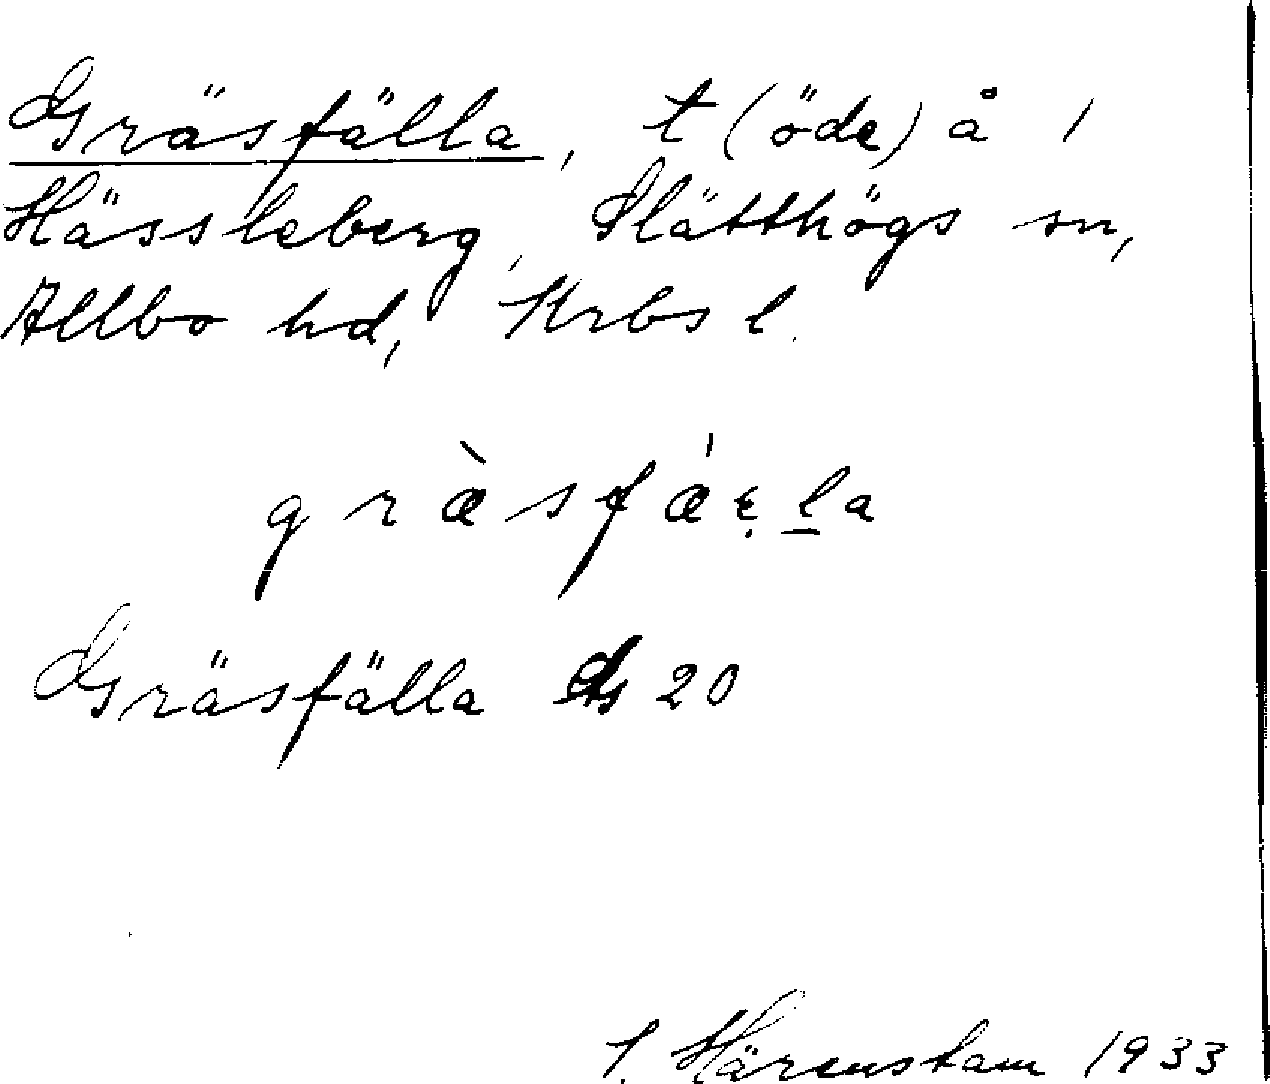 Gräsfälla, t (öde) å 1
Hässleberg, Slätthögs sn,
Allbo hd, Krbs l.
græ̀sfǽɛ̣l̠a
Gräsfälla ds 20
J. Härenstam 1933